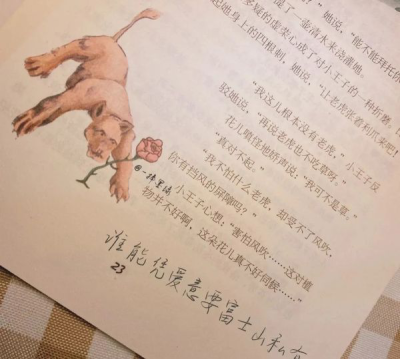 她说，"能不能拜托你
了一壶清水来浇灌她。
多疑的虚荣心成了对小王子的一种折磨。
起她身上的四根刺，她说："让老虎张着利爪来吧！
"我这儿根本没有老虎，"小王子反
驳她说，"再说老虎也不吃草呀。"
花儿嗔怪地娇声说："我可不是草。"
"真对不起。"
"我不怕什么老虎，却受不了风吹，
你有挡风的屏障吗？"
小王子心想："害怕风吹……这对植
物并不好啊，这朵花儿真不好伺候……"
谁能凭爱意要富士山私有
23